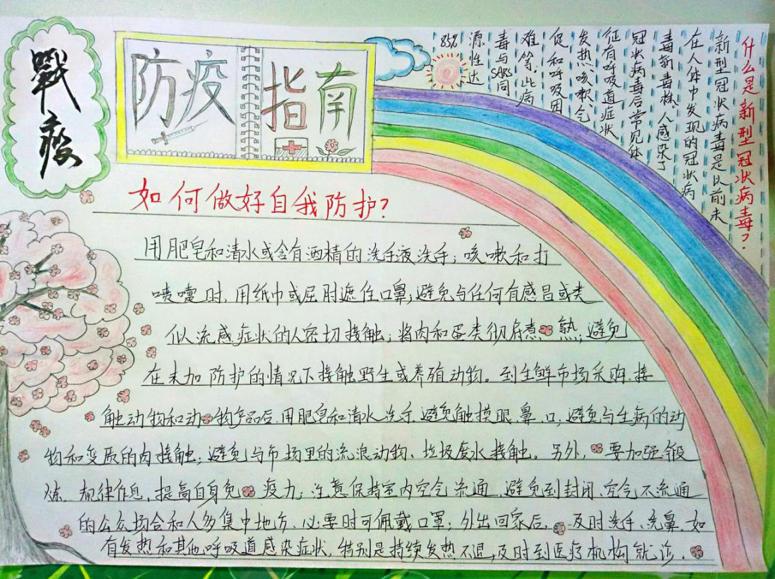 戰疫
防疫指南
什么是新型冠状病毒？
新型冠状病毒是以前未
在人体中发现的冠状病
毒新毒株，人感染了
冠状病毒后常见体
征有呼吸道症状
发热、咳嗽、气
促和呼吸困
难等，此病
毒与SARS同
源性达
85%
如何做好自我防护？
用肥皂和清水或含有酒精的洗手液洗手；咳嗽和打
喷嚏时，用纸巾或屈肘遮住口鼻；避免与任何有感冒或类
似流感症状的人密切接触；将肉和蛋类彻底煮熟；避免
在未加防护的情况下接触野生或养殖动物。到生鲜市场采购，接
触动物和动物产品后，用肥皂和清水洗手，避免触摸眼、鼻、口；避免与生病的动
物和变质的肉接触；避免与市场里的流浪动物、垃圾废水接触。另外，要加强锻
炼，规律作息，提高自身免疫力；注意保持室内空气流通，避免到封闭、空气不流通
的公众场合和人多集中地方，必要时可佩戴口罩；外出回家后，及时洗手、洗鼻，如
有发热和其他呼吸道感染症状，特别是持续发热不退，及时到医疗机构就诊。